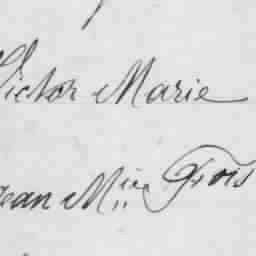 Victor Marie
Jean Mie Frois